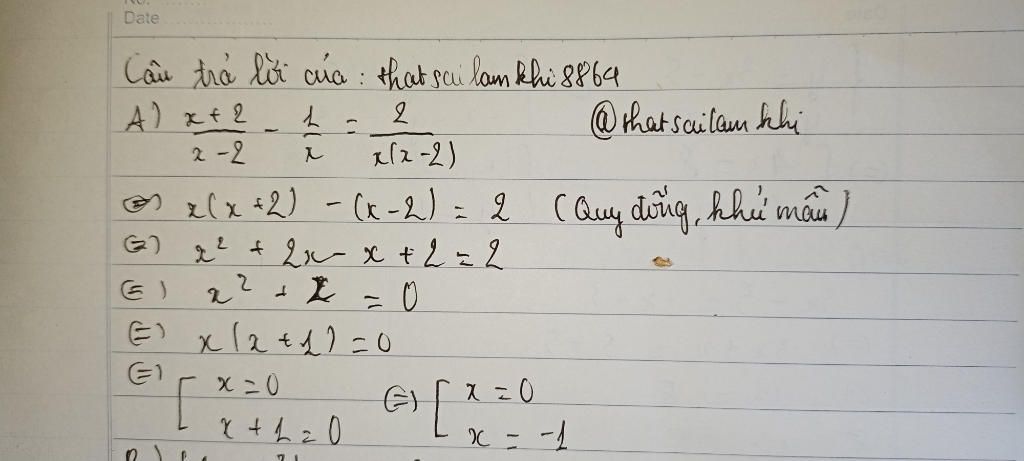 No.
Date
Câu trả lời của : thatsailamkhi8864
A) x+2/x-2 - 1/x = 2/x(x-2)
@thatsailamkhi
⇔) x(x+2) - (x-2) = 2 (Quy đồng, khử mẫu)
⇔) x² + 2x - x + 2 = 2
⇔) x² + x = 0
⇔) x(x+1) = 0
⇔) [ x = 0 ⇔) [ x = 0
x + 1 = 0 x = -1